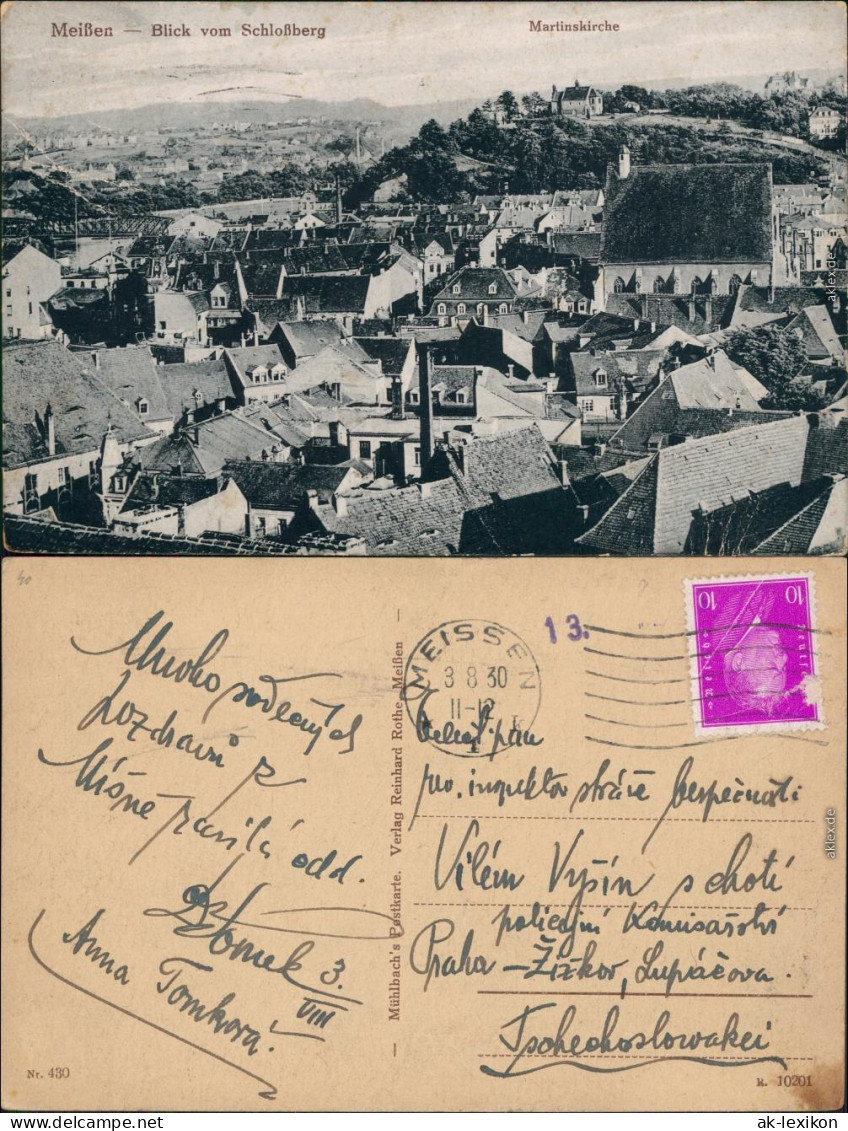 Meißen — Blick vom Schloßberg
Martinskirche
Mnoho srdečných
pozdravů z
Míšně zasílá odd.
3.
VIII
Anna Tomková.
Nr. 430
Mühlbach's Postkarte. Verlag Reinhard Rothe, Meißen
MEISSEN
3 8 30
11-12
13.
10 10
Deutsches Reich
pan
inspektor stráže bezpečnosti
Vilém Vyšín s chotí
policejní Komisařství
Praha – Žižkov, Lupáčova.
Tschechoslowakei
R. 10201
aklex.de
aklex.de
ak-lexikon
www.delcampe.net